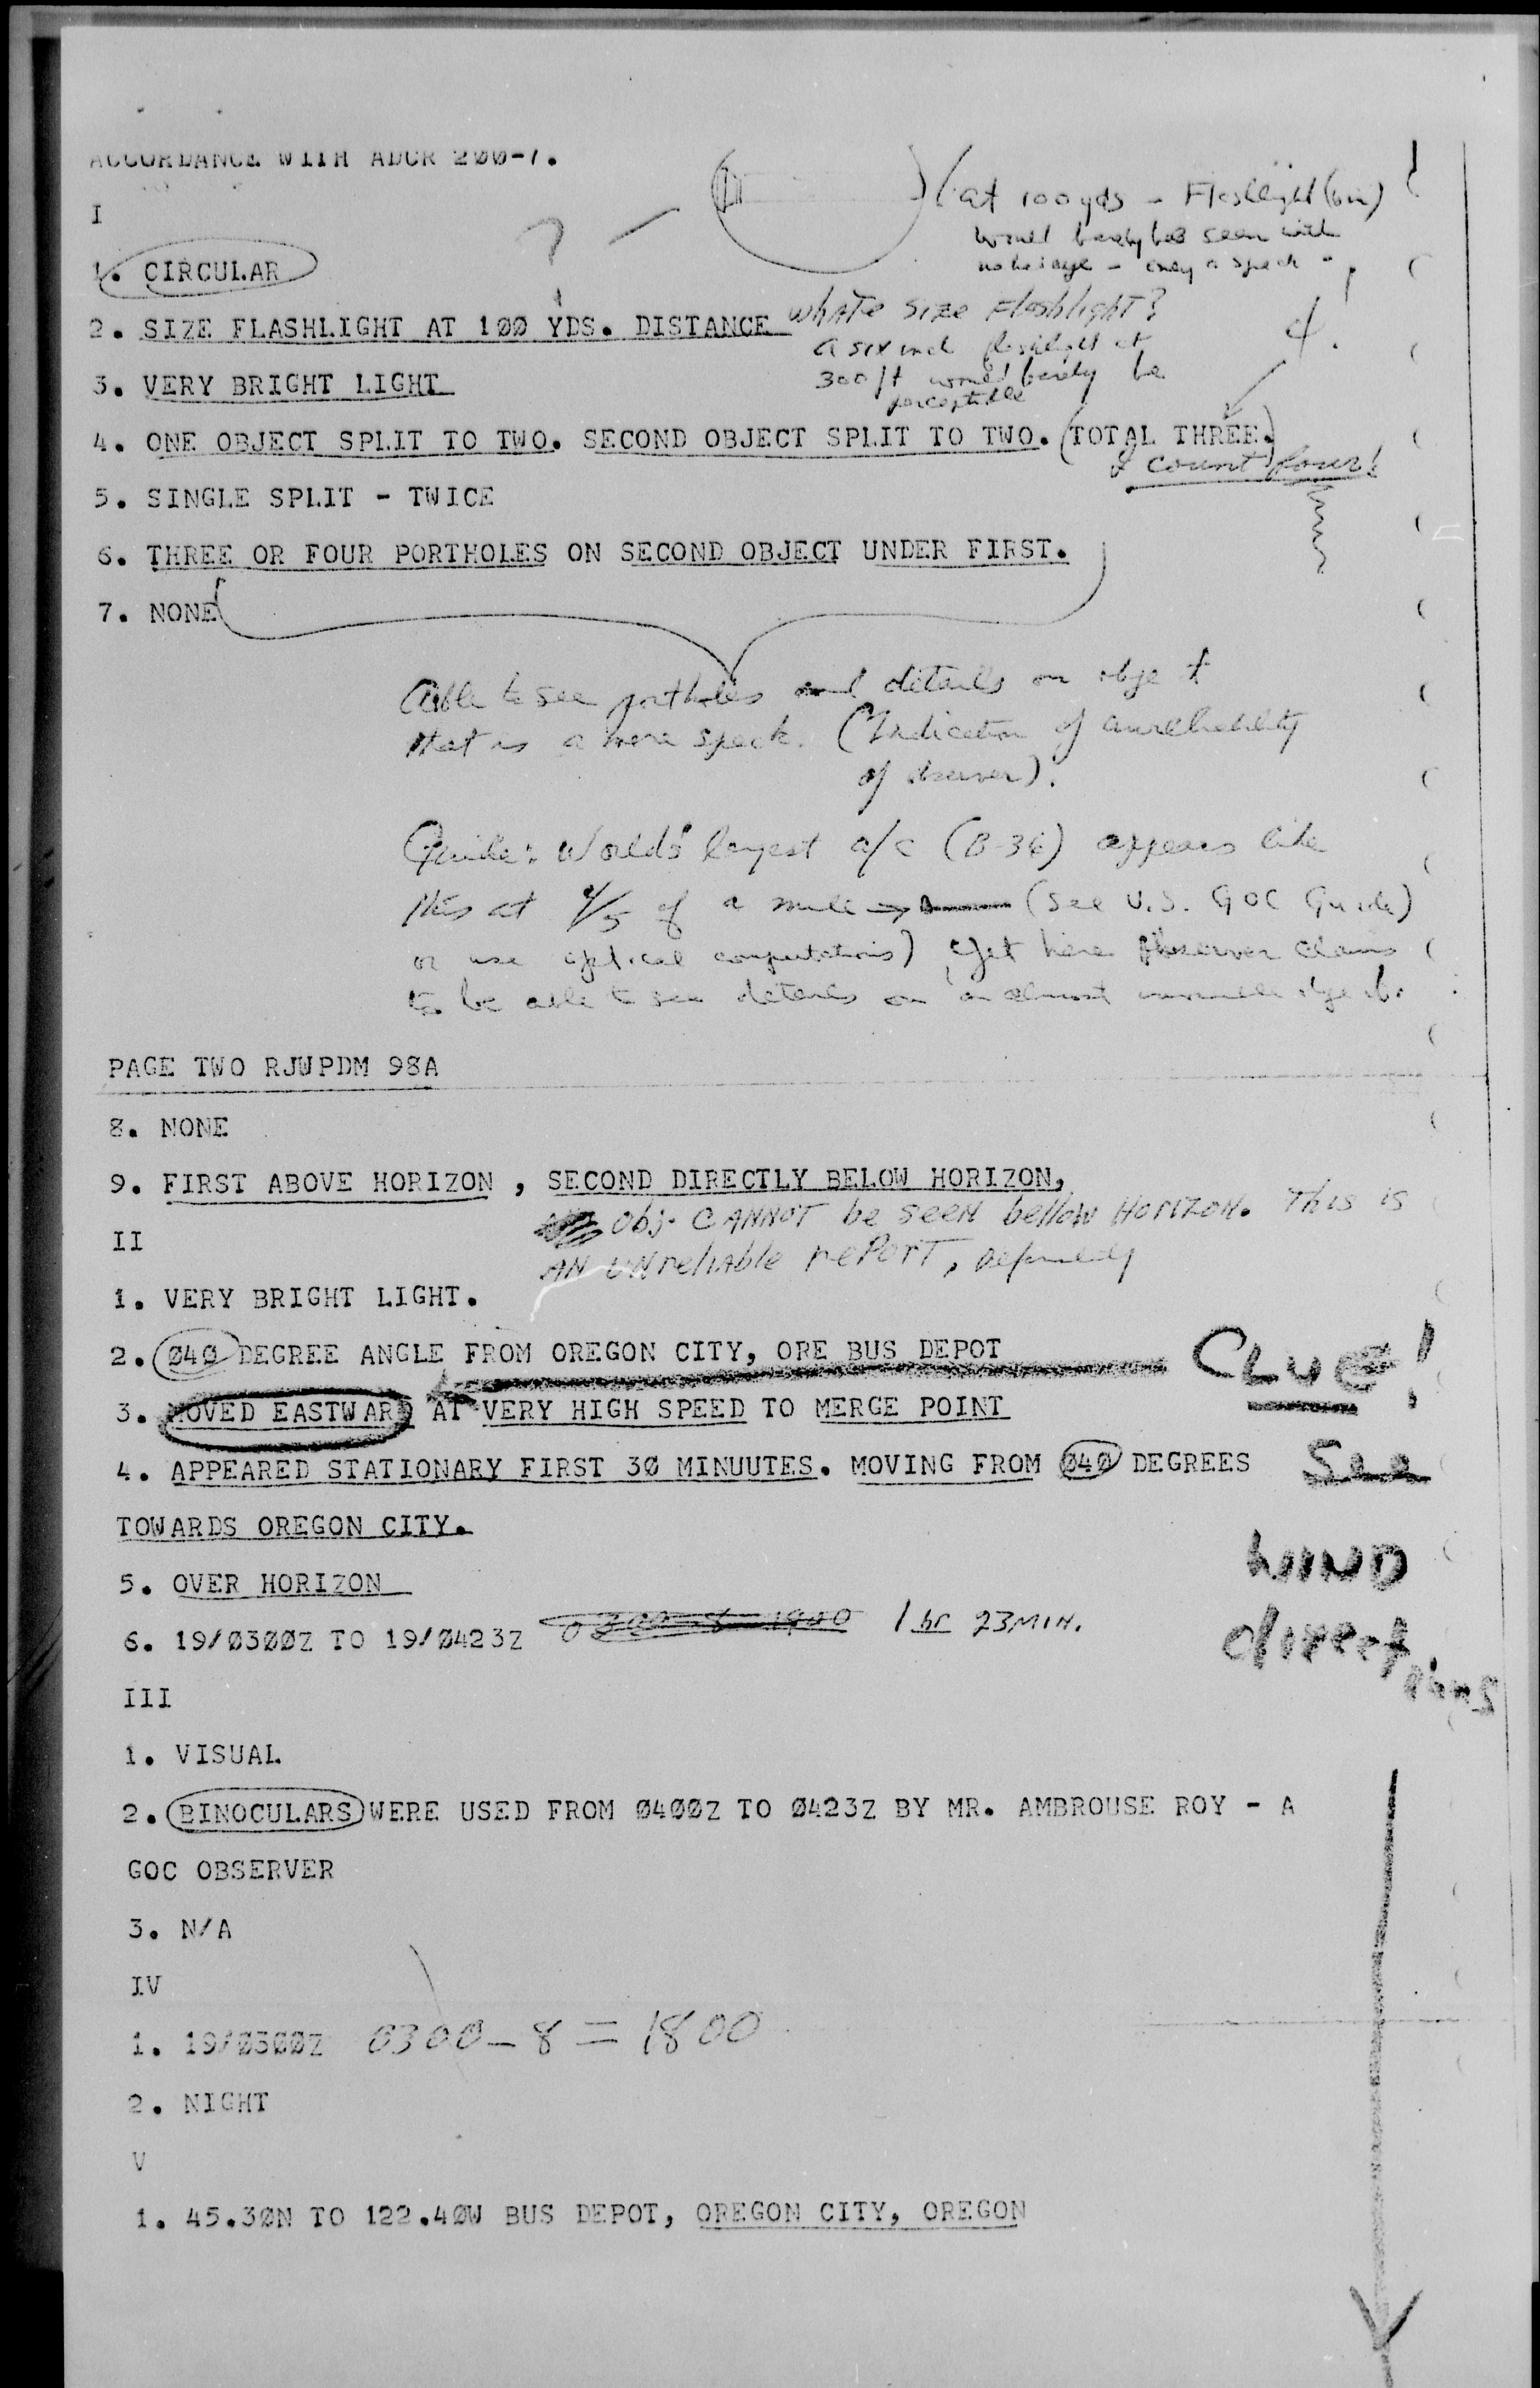 ACCORDANCE WITH ADCR 200-1.
(at 100 yds - Flashlight (6in)
would barely be seen with
only a speck
I
1. CIRCULAR
?
2. SIZE FLASHLIGHT AT 1ØØ YDS. DISTANCE whATe Size Flashlight?
a six inch flashlight at
300 ft would barely be
perceptible
4.
3. VERY BRIGHT LIGHT
4. ONE OBJECT SPLIT TO TWO. SECOND OBJECT SPLIT TO TWO. (TOTAL THREE.)
I count four!
5. SINGLE SPLIT - TWICE
6. THREE OR FOUR PORTHOLES ON SECOND OBJECT UNDER FIRST.
7. NONE
Able to see portholes and details on object
that is a mere speck. (Indication of unreliability
of observer).
Guide: World's largest a/c (B-36) appears like
this at 4/5 of a mile → (See U.S. GOC Guide)
or use optical computations) Yet here observer claims
to be able to see details on an almost invisible object.
PAGE TWO RJWPDM 98A
8. NONE
9. FIRST ABOVE HORIZON , SECOND DIRECTLY BELOW HORIZON,
Obj. CANNOT be seen bellow HorIZON. This is
AN UNreliable rePorT, Definitely
II
1. VERY BRIGHT LIGHT.
2. Ø4Ø DEGREE ANGLE FROM OREGON CITY, ORE BUS DEPOT
CLUE!
3. MOVED EASTWARD AT VERY HIGH SPEED TO MERGE POINT
4. APPEARED STATIONARY FIRST 3Ø MINUUTES. MOVING FROM Ø4Ø DEGREES
See
TOWARDS OREGON CITY.
WIND
5. OVER HORIZON
6. 19/Ø3ØØZ TO 19/Ø423Z 1 hr 23 MIN.
directions
III
1. VISUAL
2. BINOCULARS WERE USED FROM Ø4ØØZ TO Ø423Z BY MR. AMBROUSE ROY - A
GOC OBSERVER
3. N/A
IV
1. 19/Ø3ØØZ 0300 - 8 = 1800
2. NIGHT
V
1. 45.3ØN TO 122.4ØW BUS DEPOT, OREGON CITY, OREGON